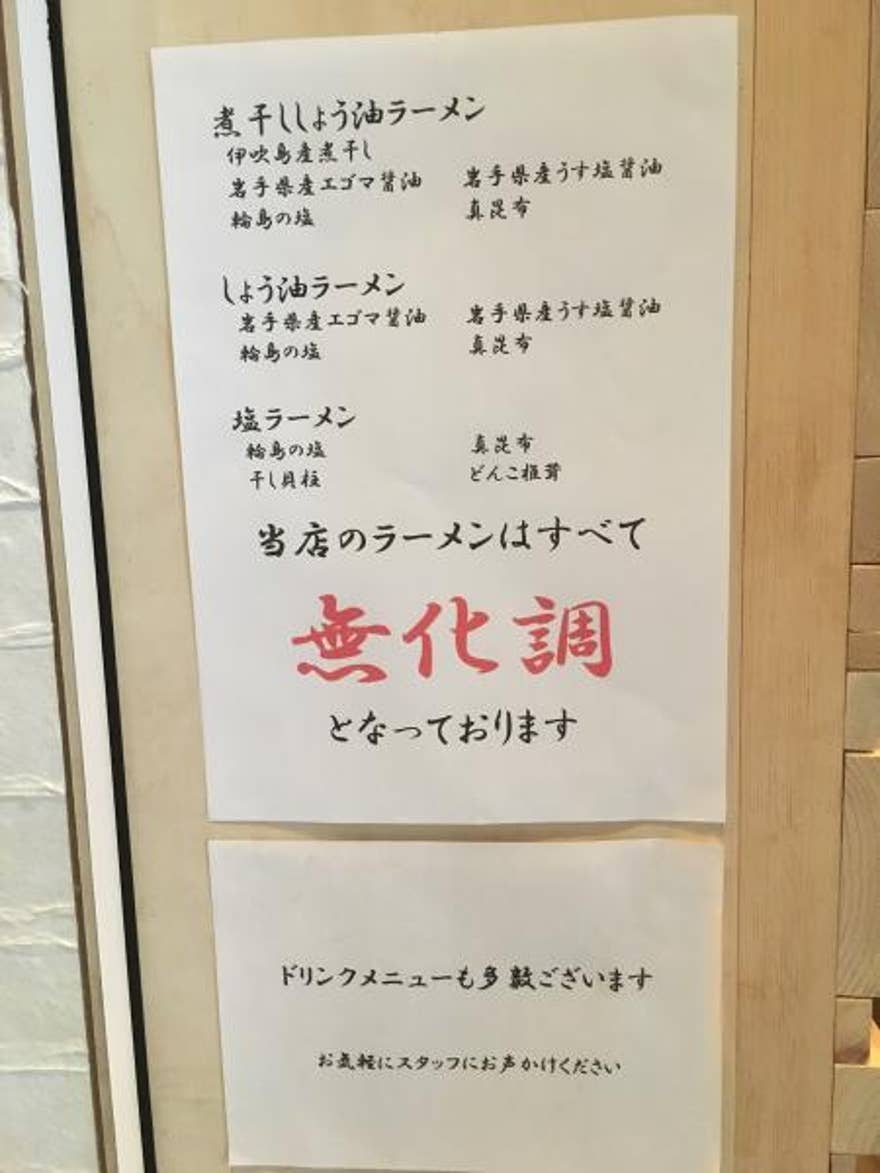 煮干ししょう油ラーメン
伊吹島産煮干し
岩手県産エゴマ醤油 岩手県産うす塩醤油
輪島の塩 真昆布
しょう油ラーメン
岩手県産エゴマ醤油 岩手県産うす塩醤油
輪島の塩 真昆布
塩ラーメン
輪島の塩 真昆布
干し貝柱 どんこ椎茸
当店のラーメンはすべて
無化調
となっております
ドリンクメニューも多数ございます
お気軽にスタッフにお声かけください